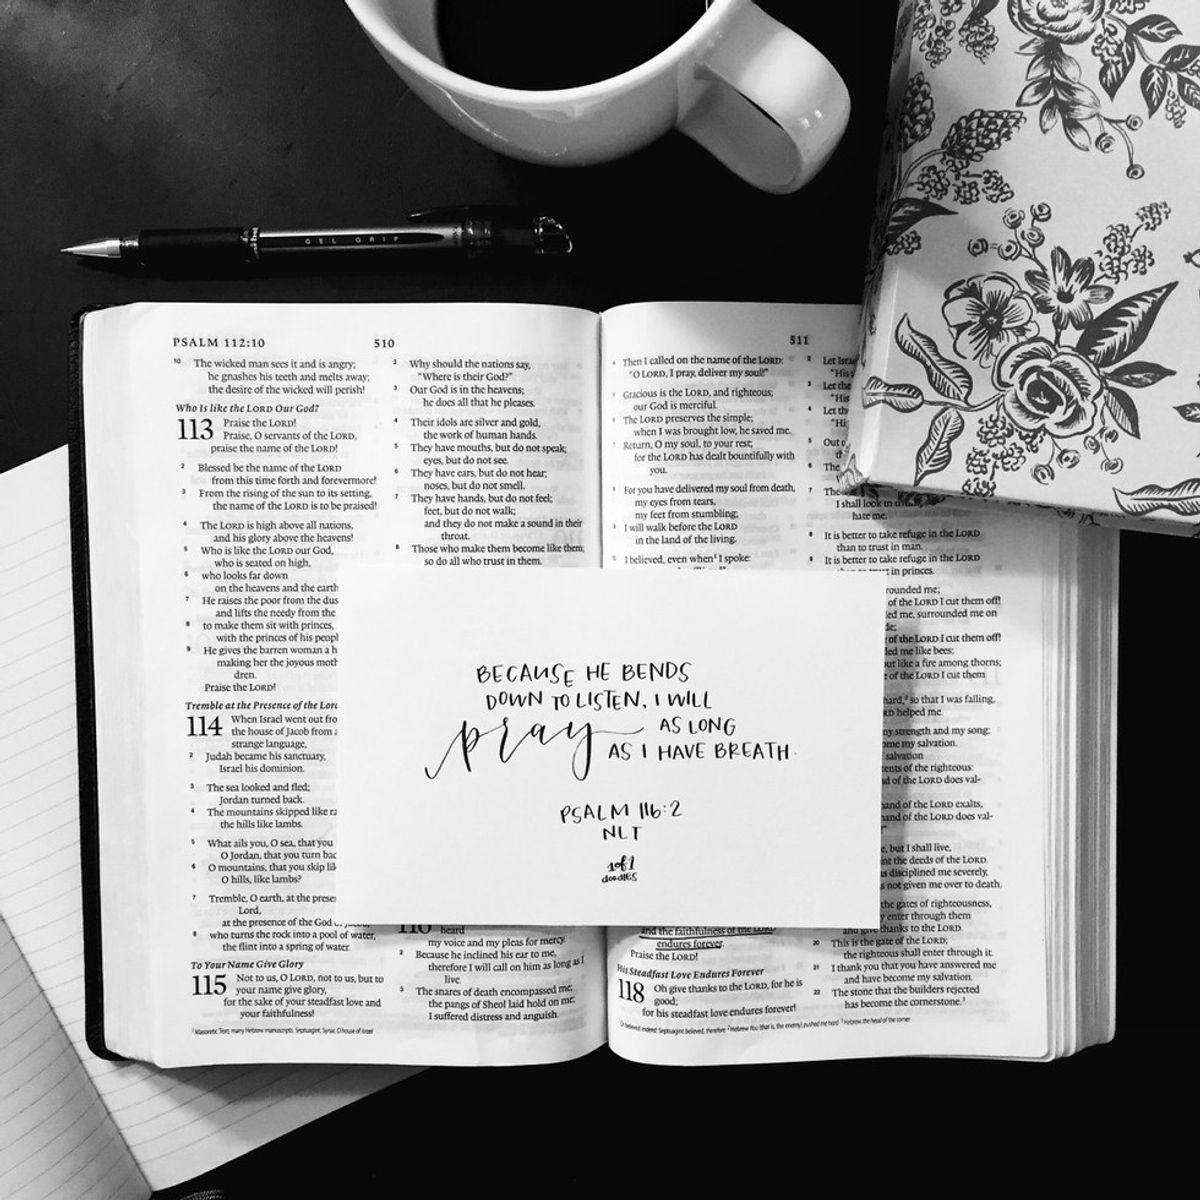 GEL GRIP
PSALM 112:10
510
10 The wicked man sees it and is angry;
he gnashes his teeth and melts away;
the desire of the wicked will perish!
Who Is like the LORD Our God?
113 Praise the LORD!
Praise, O servants of the LORD,
praise the name of the LORD!
2 Blessed be the name of the LORD
from this time forth and forevermore!
3 From the rising of the sun to its setting,
the name of the LORD is to be praised!
4 The LORD is high above all nations,
and his glory above the heavens!
5 Who is like the LORD our God,
who is seated on high,
6 who looks far down
on the heavens and the earth
7 He raises the poor from the dus
and lifts the needy from the
8 to make them sit with princes,
with the princes of his peopl
9 He gives the barren woman a h
making her the joyous moth
dren.
Praise the LORD!
Tremble at the Presence of the Lord
114 When Israel went out fro
the house of Jacob from
strange language,
2 Judah became his sanctuary,
Israel his dominion.
3 The sea looked and fled;
Jordan turned back.
4 The mountains skipped like ra
the hills like lambs.
5 What ails you, O sea, that you
O Jordan, that you turn bac
6 O mountains, that you skip lik
O hills, like lambs?
7 Tremble, O earth, at the prese
Lord,
at the presence of the God of Jacob,
8 who turns the rock into a pool of water,
the flint into a spring of water.
To Your Name Give Glory
115 Not to us, O LORD, not to us, but to
your name give glory,
for the sake of your steadfast love and
your faithfulness!
1 Masoretic Text; many Hebrew manuscripts, Septuagint, Syriac O house of Israel
2 Why should the nations say,
"Where is their God?"
3 Our God is in the heavens;
he does all that he pleases.
4 Their idols are silver and gold,
the work of human hands.
5 They have mouths, but do not speak;
eyes, but do not see.
6 They have ears, but do not hear;
noses, but do not smell.
7 They have hands, but do not feel;
feet, but do not walk;
and they do not make a sound in their
throat.
8 Those who make them become like them;
so do all who trust in them.
BECAUSE HE BENDS
DOWN TO LISTEN, I WILL
pray AS LONG
AS I HAVE BREATH.
PSALM 116:2
NLT
1of1
doodles
116 heard
my voice and my pleas for mercy.
2 Because he inclined his ear to me,
therefore I will call on him as long as I
live.
3 The snares of death encompassed me;
the pangs of Sheol laid hold on me;
I suffered distress and anguish.
511
4 Then I called on the name of the LORD:
"O LORD, I pray, deliver my soul!"
Gracious is the LORD, and righteous;
our God is merciful.
The LORD preserves the simple;
when I was brought low, he saved me.
Return, O my soul, to your rest;
for the LORD has dealt bountifully with
you.
For you have delivered my soul from death,
my eyes from tears,
my feet from stumbling;
I will walk before the LORD
in the land of the living.
I believed, even when I spoke:
and the faithfulness of the LORD
endures forever.
Praise the LORD!
His Steadfast Love Endures Forever
118 Oh give thanks to the LORD, for he is
good;
for his steadfast love endures forever!
believed, indeed; Septuagint believed, therefore 2 Hebrew You (that is, the enemy) pushed me hard 3 Hebrew the head of the corner
2 Let Israe
"His
3 Let the
"His
4 Let th
"Hi
5 Out o
th
6 The
7 The
I shall look in
hate me.
8 It is better to take refuge in the LORD
than to trust in man.
9 It is better to take refuge in the LORD
than to trust in princes.
rounded me;
of the LORD I cut them off!
ed me, surrounded me on
of the LORD I cut them off!
ed me like bees;
ut like a fire among thorns;
of the LORD I cut them
hard, so that I was falling,
helped me.
my strength and my song;
ome my salvation.
salvation
ents of the righteous:
d of the LORD does val-
and of the LORD exalts,
hand of the LORD does val-
e, but I shall live,
nt the deeds of the LORD.
s disciplined me severely,
s not given me over to death.
the gates of righteousness,
y enter through them
and give thanks to the LORD.
20 This is the gate of the LORD;
the righteous shall enter through it.
21 I thank you that you have answered me
and have become my salvation.
22 The stone that the builders rejected
has become the cornerstone.3